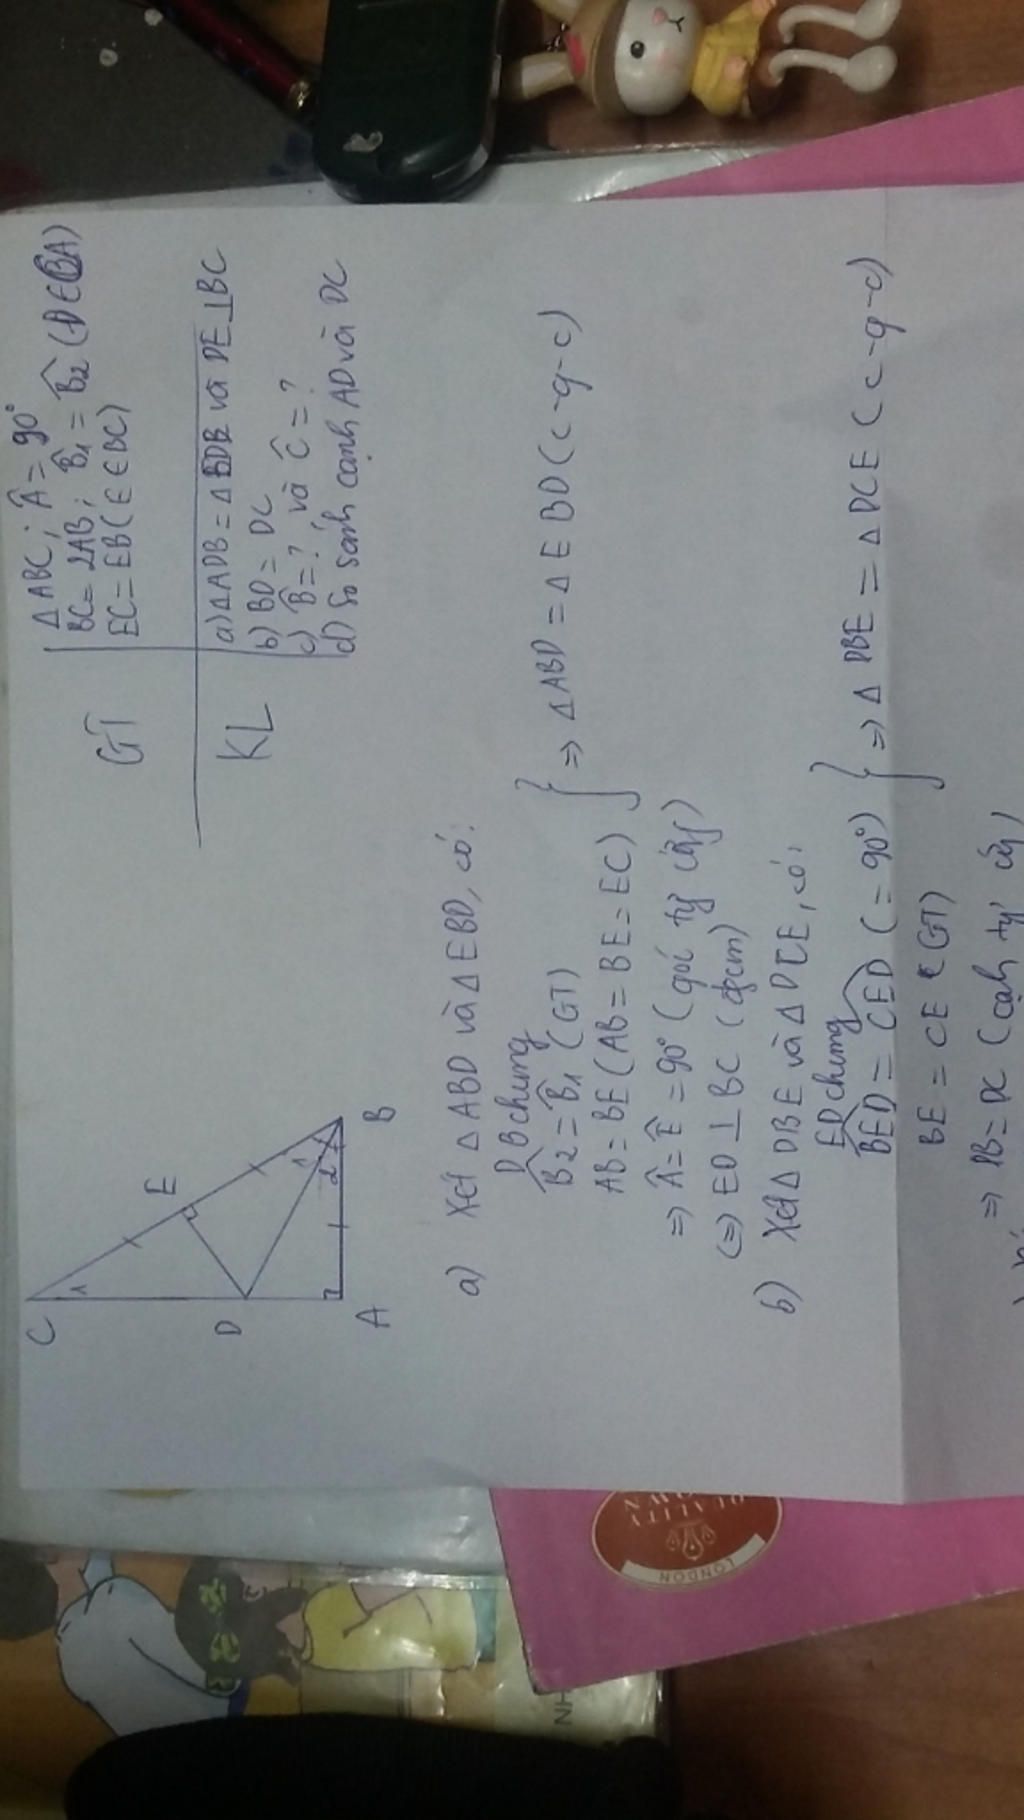 C
E
D
A
B
1
1
2
GT
ΔABC ; Â = 90°
BC = 2AB ; B̂₁ = B̂₂ (D ∈ BA)
EC = EB ( E ∈ BC)
KL
a) ΔADB = ΔBDB và DE ⊥ BC
b) BD = DC
c) B̂ = ? và Ĉ = ?
d) So sánh cạnh AD và DC
a) Xét Δ ABD và Δ EBD, có:
DB chung
B̂₂ = B̂₁ (GT)
AB = BE (AB = BE = EC)
} => ΔABD = Δ EBD (c-g-c)
=> Â = Ê = 90° (góc tự ứng)
(=) ED ⊥ BC (đpcm)
b) Xét Δ DBE và Δ DCE, có:
ED chung
BED = CED (= 90°)
BE = CE (GT)
} => Δ DBE = Δ DCE (c-g-c)
=> DB = DC (cạnh tự ứng)
LONDON
NH